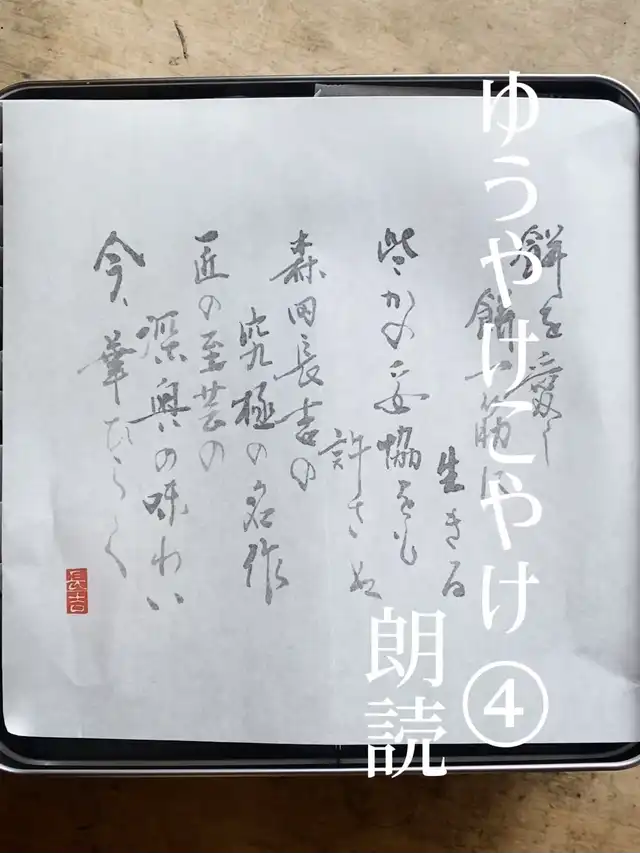 ゆうやけこやけ④
朗読
餅を愛し
餅一筋に
生きる
些かの妥協をも
許さぬ
森田長吉の
究極の名作
匠の至芸の
深奥の味わい
今、華ひらく
長吉